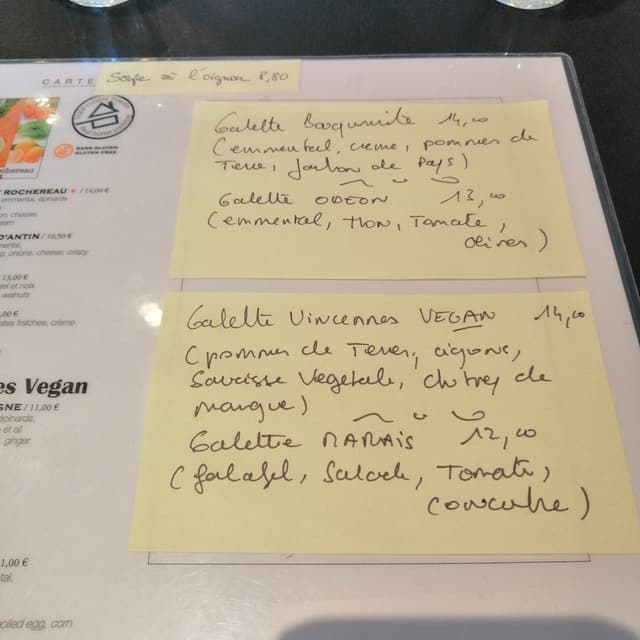 CARTE
Soupe à l'oignon 8,80
SANS GLUTEN
GLUTEN FREE
rochereau
T ROCHEREAU / 14,00 €
emmental, épinards
D'ANTIN / 10,50 €
onions, cheese, crispy
13,00 €
miel et noix
walnuts
,00 €
ates fraîches, crème
es Vegan
GNE / 11,00 €
épinards,
e et ail
ginger
1,00 €
tal,
boiled egg, corn
Galette 14,00
(emmental, creme, pommes de
Terre, Jambon de Pays)
Galette ODEON 13,00
(emmental, Thon, Tomate,
olives)
Galette Vincennes VEGAN 14,00
(pommes de Terre, oignons,
Saucisse Vegetale, chutney de
mangue)
Galette MARAIS 12,00
(falafel, Salade, Tomate,
Concombre)